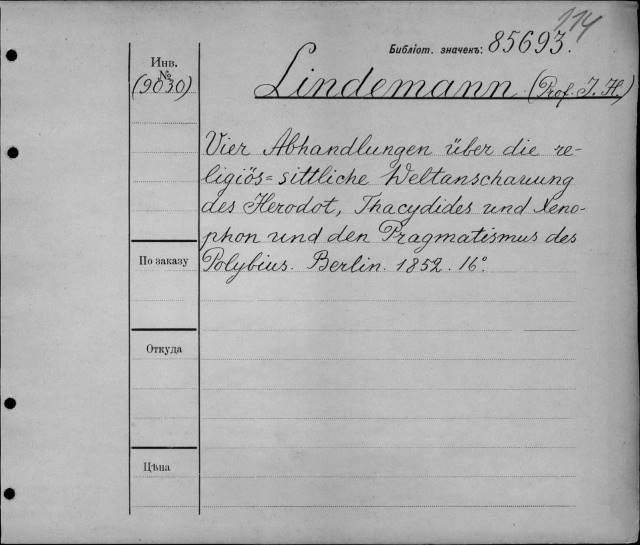 114
Библіот. значекъ: 85693.
Инв.
№
(9030)
Lindemann (Prof. J. H.)
Vier Abhandlungen über die re-
ligiös=sittliche Weltanschauung
des Herodot, Thacydides und Xeno-
phon und den Pragmatismus des
Polybius. Berlin. 1852. 16°.
По заказу
Откуда
Цѣна